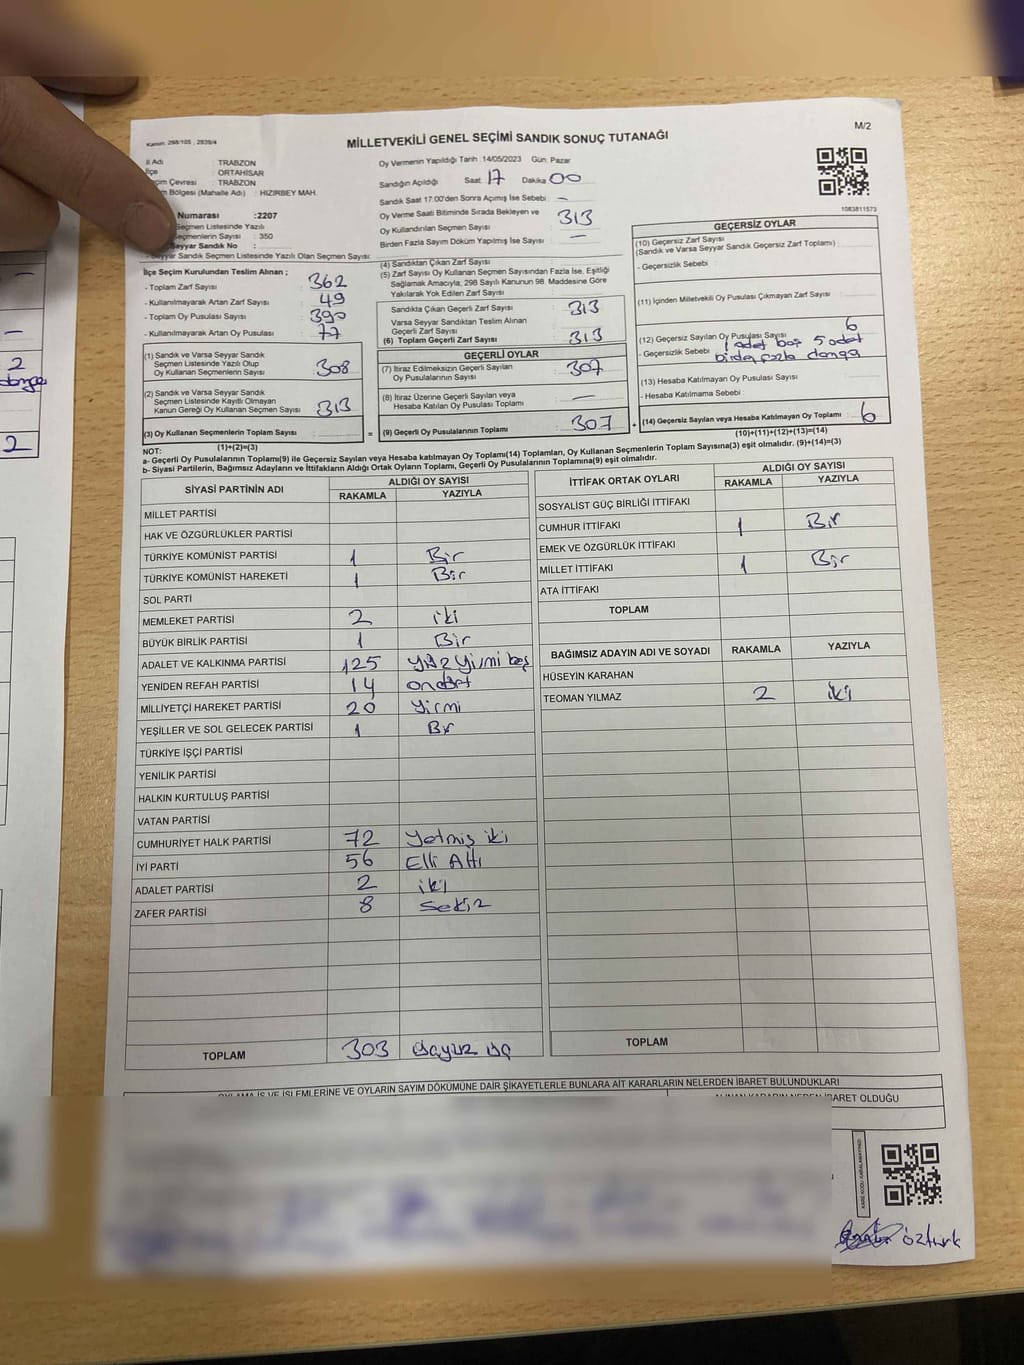 M/2
Kanun: 298/105, 2839/4
MİLLETVEKİLİ GENEL SEÇİMİ SANDIK SONUÇ TUTANAĞI
1083811573
İl Adı : TRABZON
İlçe : ORTAHİSAR
Çevresi : TRABZON
Bölgesi (Mahalle Adı) : HIZIRBEY MAH.
Numarası :2207
Seçmen Listesinde Yazılı
Seçmenlerin Sayısı : 350
Seyyar Sandık No :
Seyyar Sandık Seçmen Listesinde Yazılı Olan Seçmen Sayısı:
Oy Vermenin Yapıldığı Tarih : 14/05/2023 Gün: Pazar
Sandığın Açıldığı Saat: 17 Dakika 00
Sandık Saat 17:00'den Sonra Açımış İse Sebebi : –
Oy Verme Saati Bitiminde Sırada Bekleyen ve
Oy Kullandırılan Seçmen Sayısı : 313
Birden Fazla Sayım Döküm Yapılmış İse Sayısı : –
İlçe Seçim Kurulundan Teslim Alınan ;
- Toplam Zarf Sayısı : 362
- Kullanılmayarak Artan Zarf Sayısı : 49
- Toplam Oy Pusulası Sayısı : 390
- Kullanılmayarak Artan Oy Pusulası : 77
(1) Sandık ve Varsa Seyyar Sandık
Seçmen Listesinde Yazılı Olup
Oy Kullanan Seçmenlerin Sayısı : 308
(2) Sandık ve Varsa Seyyar Sandık
Seçmen Listesinde Kayıtlı Olmayan
Kanun Gereği Oy Kullanan Seçmen Sayısı : 313
(3) Oy Kullanan Seçmenlerin Toplam Sayısı :
(1)+(2)=(3)
(4) Sandıktan Çıkan Zarf Sayısı :
(5) Zarf Sayısı Oy Kullanan Seçmen Sayısından Fazla İse, Eşitliği
Sağlamak Amacıyla, 298 Sayılı Kanunun 98. Maddesine Göre
Yakılarak Yok Edilen Zarf Sayısı :
Sandıkta Çıkan Geçerli Zarf Sayısı : 313
Varsa Seyyar Sandıktan Teslim Alınan
Geçerli Zarf Sayısı :
(6) Toplam Geçerli Zarf Sayısı : 313
GEÇERLİ OYLAR
(7) İtiraz Edilmeksizin Geçerli Sayılan
Oy Pusulalarının Sayısı : 307
(8) İtiraz Üzerine Geçerli Sayılan veya
Hesaba Katılan Oy Pusulası Toplamı : –
= (9) Geçerli Oy Pusulalarının Toplamı : 307
GEÇERSİZ OYLAR
(10) Geçersiz Zarf Sayısı
(Sandık ve Varsa Seyyar Sandık Geçersiz Zarf Toplamı) :
- Geçersizlik Sebebi :
(11) İçinden Milletvekili Oy Pusulası Çıkmayan Zarf Sayısı :
(12) Geçersiz Sayılan Oy Pusulası Sayısı : 6
- Geçersizlik Sebebi : 1 adet boş 5 adet
birden fazla damga
(13) Hesaba Katılmayan Oy Pusulası Sayısı :
- Hesaba Katılmama Sebebi :
+ (14) Geçersiz Sayılan veya Hesaba Katılmayan Oy Toplamı : 6
(10)+(11)+(12)+(13)=(14)
NOT:
a- Geçerli Oy Pusulalarının Toplamı(9) ile Geçersiz Sayılan veya Hesaba katılmayan Oy Toplamı(14) Toplamları, Oy Kullanan Seçmenlerin Toplam Sayısına(3) eşit olmalıdır. (9)+(14)=(3)
b- Siyasi Partilerin, Bağımsız Adayların ve İttifakların Aldığı Ortak Oyların Toplamı, Geçerli Oy Pusulalarının Toplamına(9) eşit olmalıdır.
SİYASİ PARTİNİN ADI ALDIĞI OY SAYISI
RAKAMLA YAZIYLA
MİLLET PARTİSİ
HAK VE ÖZGÜRLÜKLER PARTİSİ
TÜRKİYE KOMÜNİST PARTİSİ 1 Bir
TÜRKİYE KOMÜNİST HAREKETİ 1 Bir
SOL PARTİ
MEMLEKET PARTİSİ 2 iki
BÜYÜK BİRLİK PARTİSİ 1 Bir
ADALET VE KALKINMA PARTİSİ 125 yüz yirmi beş
YENİDEN REFAH PARTİSİ 14 ondört
MİLLİYETÇİ HAREKET PARTİSİ 20 yirmi
YEŞİLLER VE SOL GELECEK PARTİSİ 1 Bir
TÜRKİYE İŞÇİ PARTİSİ
YENİLİK PARTİSİ
HALKIN KURTULUŞ PARTİSİ
VATAN PARTİSİ
CUMHURİYET HALK PARTİSİ 72 Yetmiş iki
İYİ PARTİ 56 Elli Altı
ADALET PARTİSİ 2 iki
ZAFER PARTİSİ 8 Sekiz
TOPLAM 303 üçyüz üç
İTTİFAK ORTAK OYLARI ALDIĞI OY SAYISI
RAKAMLA YAZIYLA
SOSYALİST GÜÇ BİRLİĞİ İTTİFAKI
CUMHUR İTTİFAKI 1 Bir
EMEK VE ÖZGÜRLÜK İTTİFAKI
MİLLET İTTİFAKI 1 Bir
ATA İTTİFAKI
TOPLAM
BAĞIMSIZ ADAYIN ADI VE SOYADI RAKAMLA YAZIYLA
HÜSEYİN KARAHAN
TEOMAN YILMAZ 2 iki
TOPLAM
OYLAMA İŞ VE İŞLEMLERİNE VE OYLARIN SAYIM DÖKÜMÜNE DAİR ŞİKAYETLERLE BUNLARA AİT KARARLARIN NELERDEN İBARET BULUNDUKLARI
ALINAN KARARIN NEDEN İBARET OLDUĞU
öztürk
2
damga
2